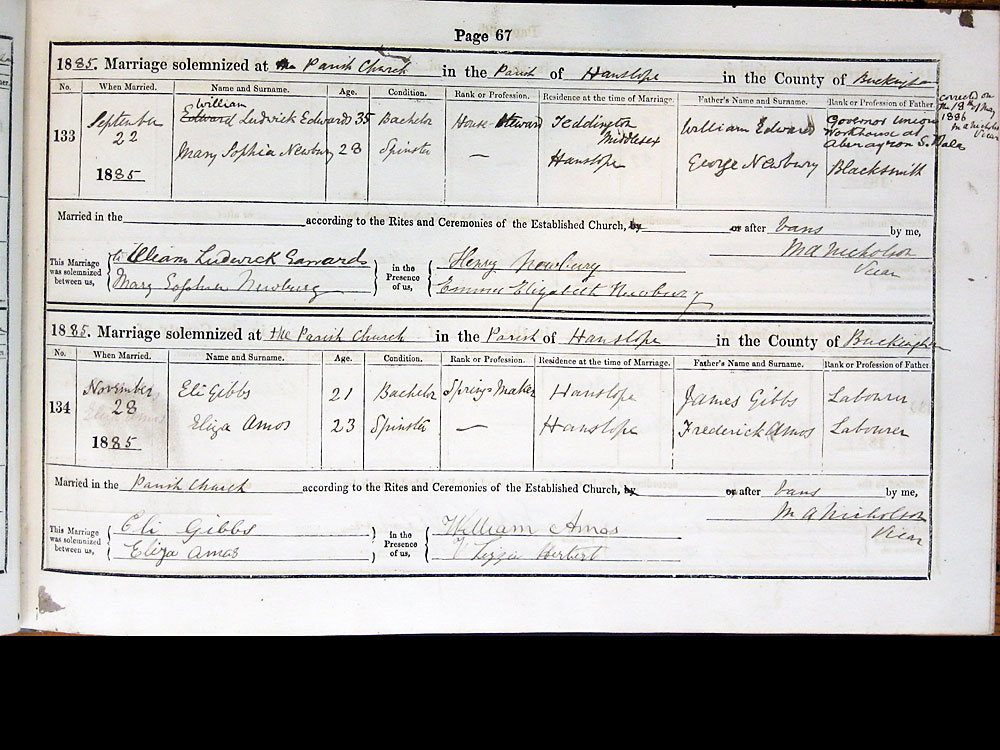 Page 67
1885. Marriage solemnized at the Parish Church in the Parish of Hanslope in the County of Buckingham
No. When Married. Name and Surname. Age. Condition. Rank or Profession. Residence at the time of Marriage. Father's Name and Surname. Rank or Profession of Father.
corrected on
the 18th May
1886
M A Nicholson
Vicar
William
133 September 22 1885 Edward Ludwick Edwards 35 Bachelor House Steward Teddington Middlesex William Edwards Governor Union Workhouse at Aberayron S. Wales
Mary Sophia Newbury 28 Spinster — Hanslope George Newbury Blacksmith
Married in the according to the Rites and Ceremonies of the Established Church, by or after bans by me,
M A Nicholson
Vicar
This Marriage was solemnized between us, William Ludwick Edwards in the Presence of us, Henry Newbury
Mary Sophia Newbury Emma Elizabeth Newbury
1885. Marriage solemnized at the Parish Church in the Parish of Hanslope in the County of Buckingham
No. When Married. Name and Surname. Age. Condition. Rank or Profession. Residence at the time of Marriage. Father's Name and Surname. Rank or Profession of Father.
134 November 28 1885 Eli Gibbs 21 Bachelor Spring Maker Hanslope James Gibbs Labourer
Eliza Amos 23 Spinster — Hanslope Frederick Amos Labourer
Married in the Parish Church according to the Rites and Ceremonies of the Established Church, by or after bans by me,
M A Nicholson
Vicar
This Marriage was solemnized between us, Eli Gibbs in the Presence of us, William Amos
Eliza Amos Herbert